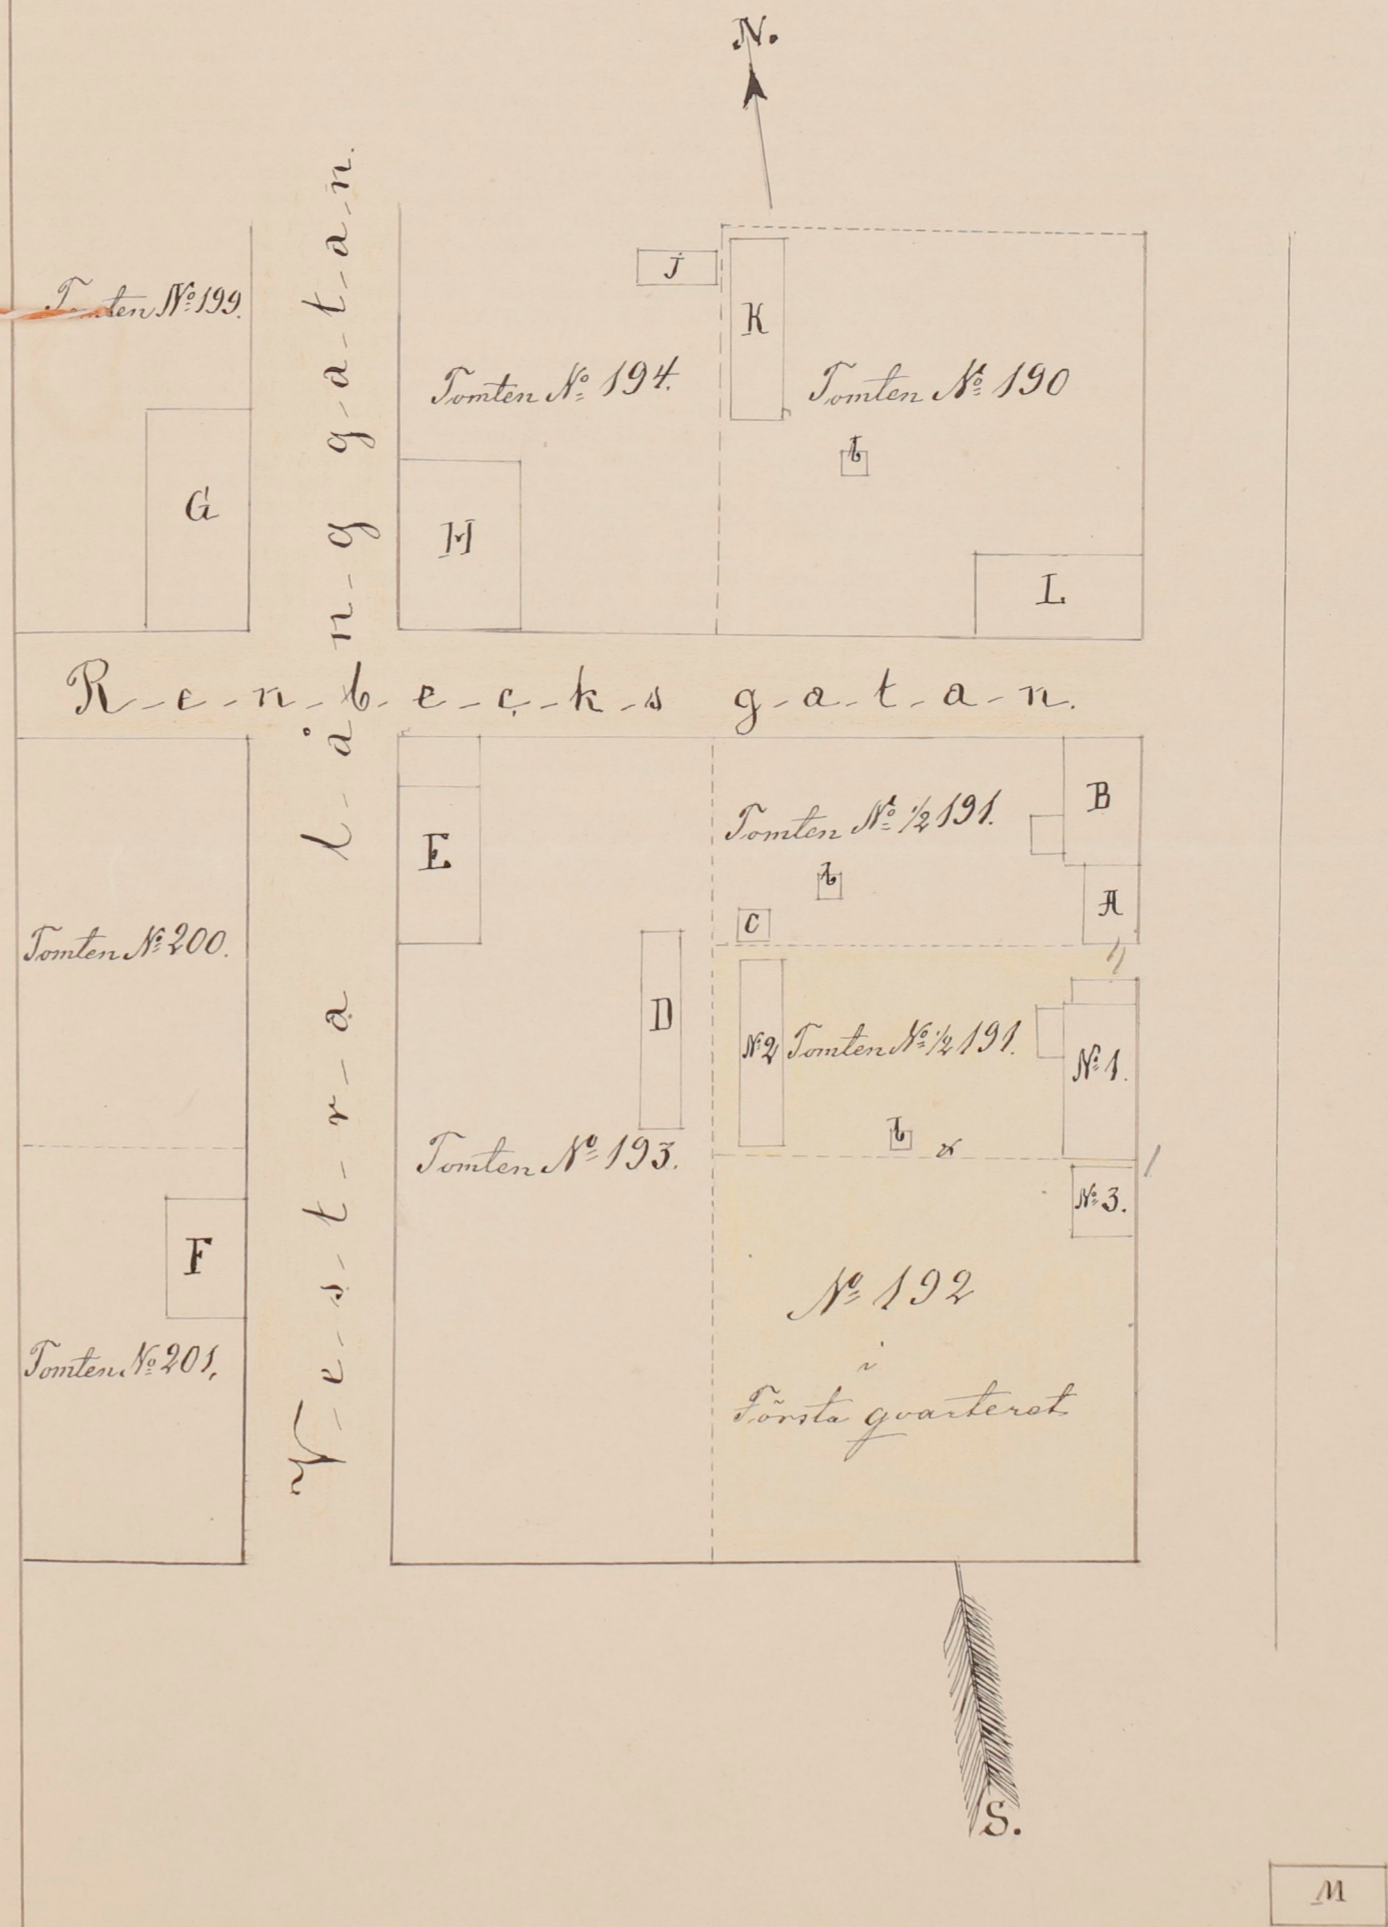 N.
Tomten No 199.
J
K
Tomten No 194.
Tomten No 190
b
G
H
L
Renbecks gatan.
Vestra långgatan.
E
Tomten No 1/2 191.
B
b
A
C
Tomten No 200.
D
No 2
Tomten No 1/2 191.
No 1.
b
Tomten No 193.
No 3.
F
No 192
i
Första qvarteret
Tomten No 201.
S.
M